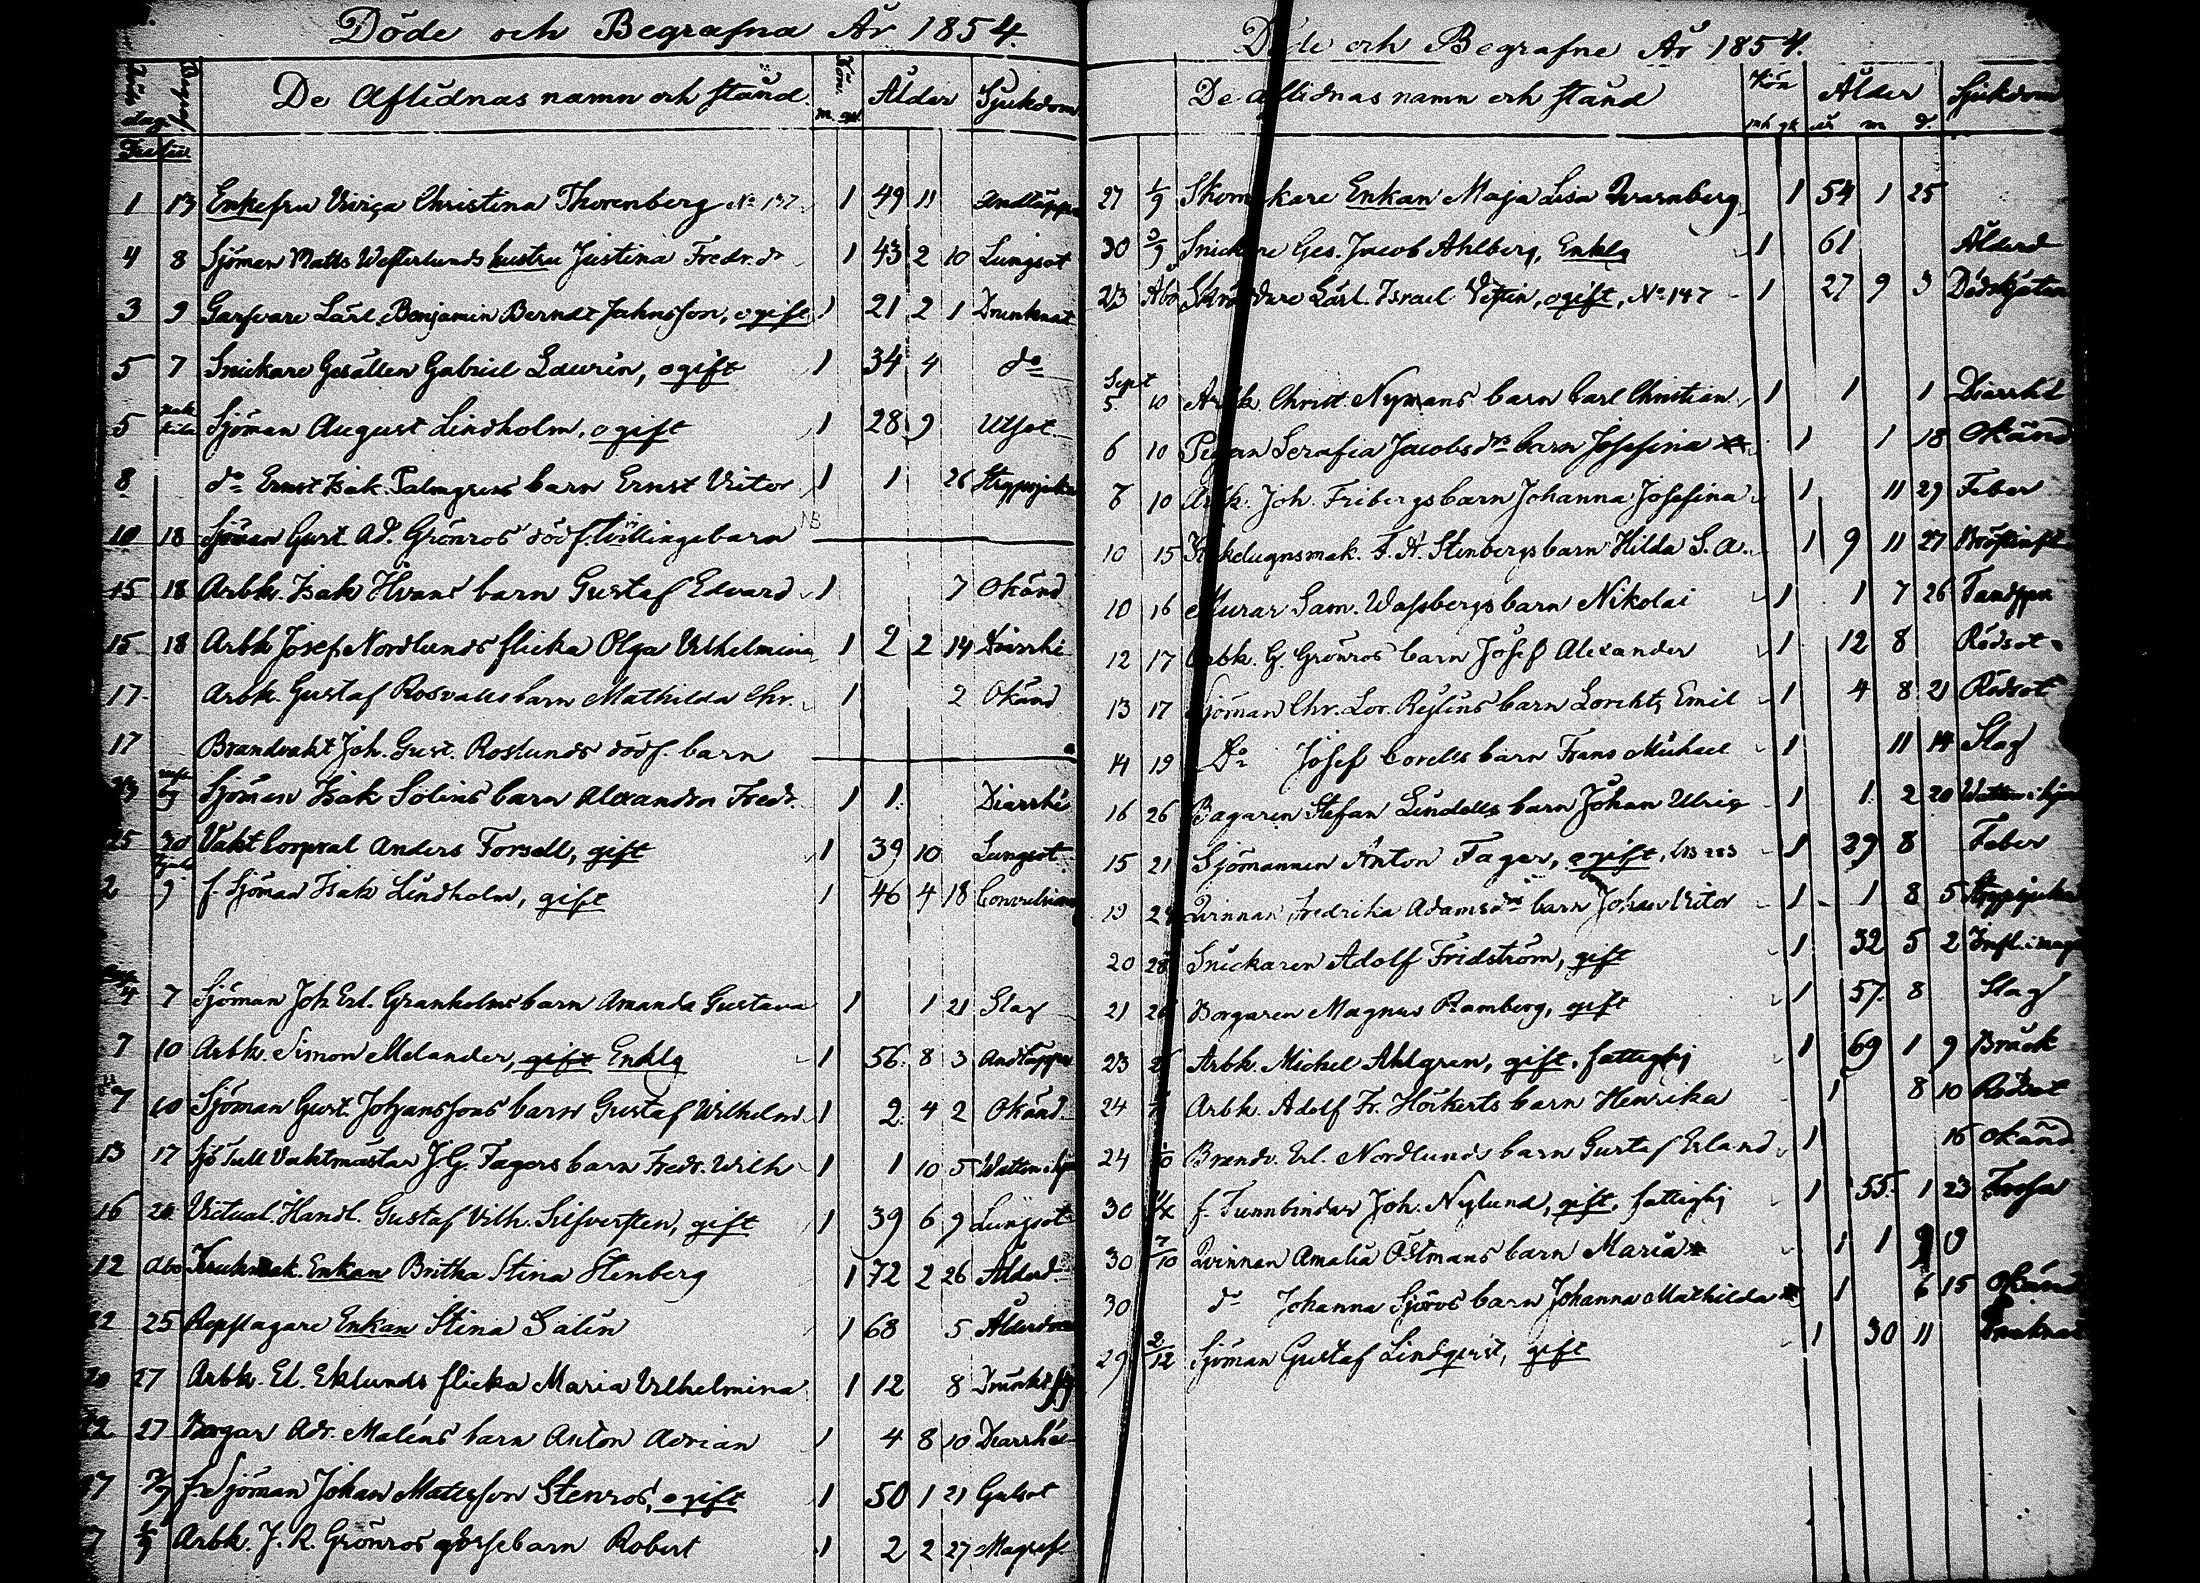 Döde och Begrafna År 1854.
Döds dag Begraf De Aflidnas namn och stånd. Kön m. qv. Ålder Sjukdom
1 13 Enkefru Viviça Christina Thorenberg No 137 1 49 11 Andtäppa
4 8 Sjöman Matts Westerlunds hustru Justina Fredr. dr 1 43 2 10 Lungsot
3 9 Garfvare Lärl. Benjamin Berndt Jahnsson, ogift 1 21 2 1 Drunknat
5 7 Snickare Gesällen Gabriel Laurin, ogift 1 34 4 do
5 Sjöman August Lindholm, ogift 1 28 9 Utsot
8 do Ernst Isak Palmgrens barn Ernst Victor 1 1 26 Strypsjuka
10 18 Sjöman Gust. Ad. Grönros dödf. tvillingebarn
15 18 Arbk. Isak Hvans barn Gustaf Edvard 1 7 Okänd
15 18 Arbk Josef Nordlunds flicka Olga Vilhelmina 1 2 2 14 Diarrhé
17 Arbk. Gustaf Rosvalls barn Mathilda Chr. 1 2 Okänd
17 Brandvakt Joh. Gust. Roslunds dödf. barn
23 Sjöman Isak Solins barn Alexandra Fredr. 1 1 Diarrhé
25 30 Vakt Corpral Anders Forsell, gift 1 39 10 Lungsot
2 9 f. Sjöman Isak Lindholm, gift 1 46 4 18 Convulsioner
4 7 Sjöman Joh. Erl. Granholms barn Amanda Gustava 1 1 21 Slag
7 10 Arbk. Simon Melander, gift Enklg 1 56 8 3 Andtäppa
7 10 Sjöman Gust. Johanssons barn Gustaf Wilhelm 1 2 4 2 Okänd
13 17 Sjö Tull Vaktmästar J. G. Fagers barn Fredr. Wilh 1 1 10 5 Watten i hju
16 20 Victual. Handl. Gustaf Vilh. Silfversten, gift 1 39 6 9 Lungsot
12 Abo Krukmak. Enkan Britha Stina Stenberg 1 72 2 26 Ålderd.
22 25 Repslagare Enkan Stina Salin 1 68 5 Ålderdom
20 27 Arbk. El. Eklunds flicka Maria Vilhelmina 1 12 8
22 27 Borgar Adr. Maléns barn Anton Adrian 1 4 8 10 Diarrhée
27 3/9 fr Sjöman Johan Matsson Stenros, ogift 1 50 1 21 Gulsot
7 1/9 Arbk. J. R. Grönros gosse barn Robert 1 2 2 27 Magref.
Döde och Begrafne År 1854.
De aflidnas namn och stånd Kön mk qk Ålder år m d. Sjukdom
27 1/9 Skomakare Enkan Maja Lisa Qvarnberg 1 54 1 25
30 3/9 Snickare Ges. Jacob Ahlberg, Enklg 1 61 Ålderd
23 Abo Skräddare Lärl. Israel Vestin, ogift, No 147 1 27 9 3 Dödskjuten
Sept
5 10 Arbk. Christ. Nymans barn Carl Christian 1 1 1 Diarrhé
6 10 Pigan Serafia Jacobsdrs barn Josefina 1 1 18 Okänd
8 10 Arbk. Joh. Fribergs barn Johanna Josefina 1 11 29 Feber
10 15 Kakelugnsmak. F. H. Stenbergs barn Hilda S. A. 1 9 11 27 Bröstinfl
10 16 Murar Sam. Wassbergs barn Nikolai 1 1 7 26 Tandspr
12 17 Arbk. G. Grönros barn Josef Alexander 1 12 8 Rödsot
13 17 Sjöman Chr. Lor. Reslins barn Lorentz Emil 1 4 8 21 Rödsot
14 19 Do Josef Corells barn Frans Michael 1 11 14 Slag
16 26 Bagaren Stefan Lindells barn Johan Ulrig 1 1 2 20 Watten i hjer
15 21 Sjömannen Anton Fager, ogift, 1 29 8 Feber
19 24 Qvinnan Fredrika Adamsdrs barn Johan Victor 1 1 8 5 Strypsjuka
20 28 Snickaren Adolf Fridström, gift 1 32 5 2 Infl. i mage
21 26 Borgaren Magnus Ramberg, gift 1 57 8 Slag
23 Arbk. Mickel Ahlgren, gift, fattighj 1 69 1 9 Bråck
24 Arbk. Adolf Fr. Höckerts barn Henrika 1 8 10 Rödsot
24 1/10 Brandv. Erl. Nordlunds barn Gustaf Erland 1 16 Okänd
30 f. Tunnbindar Joh. Nylund, gift, fattighj 1 55 1 23 Frossa
30 7/10 Qvinnan Amalia Östmans barn Maria 1 1 9 0
30 do Johanna Sjöros barn Johanna Mathilda 1 6 15 Okänd
29 2/12 Sjöman Gustaf Lindqvist, gift 1 30 11 Drunknat